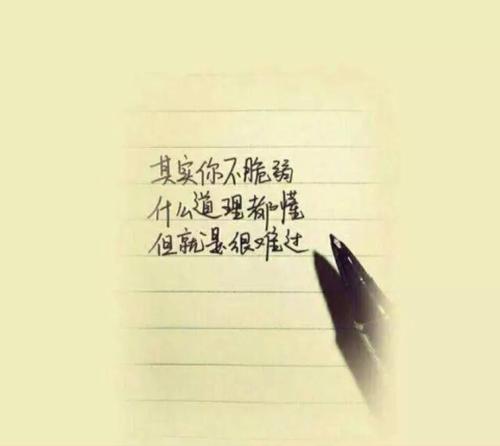 其实你不脆弱
什么道理都懂
但就是很难过